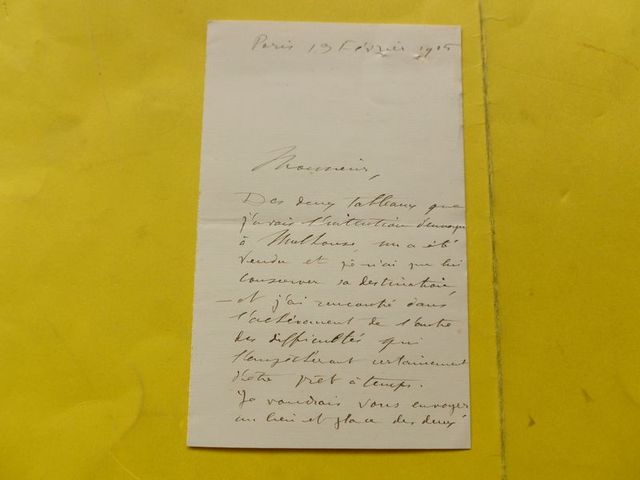 Paris 19 Février
Monsieur,
Des deux tableaux que
j'avais l'intention d'envoyer
à Mulhouse, un a été
vendu et je n'ai pu lui
conserver sa destination
— et j'ai rencontré dans
l'achèvement de l'autre
des difficultés qui
l'empêcheront certainement
d'être prêt à temps.
Je voudrais vous envoyer
au lieu et place des deux